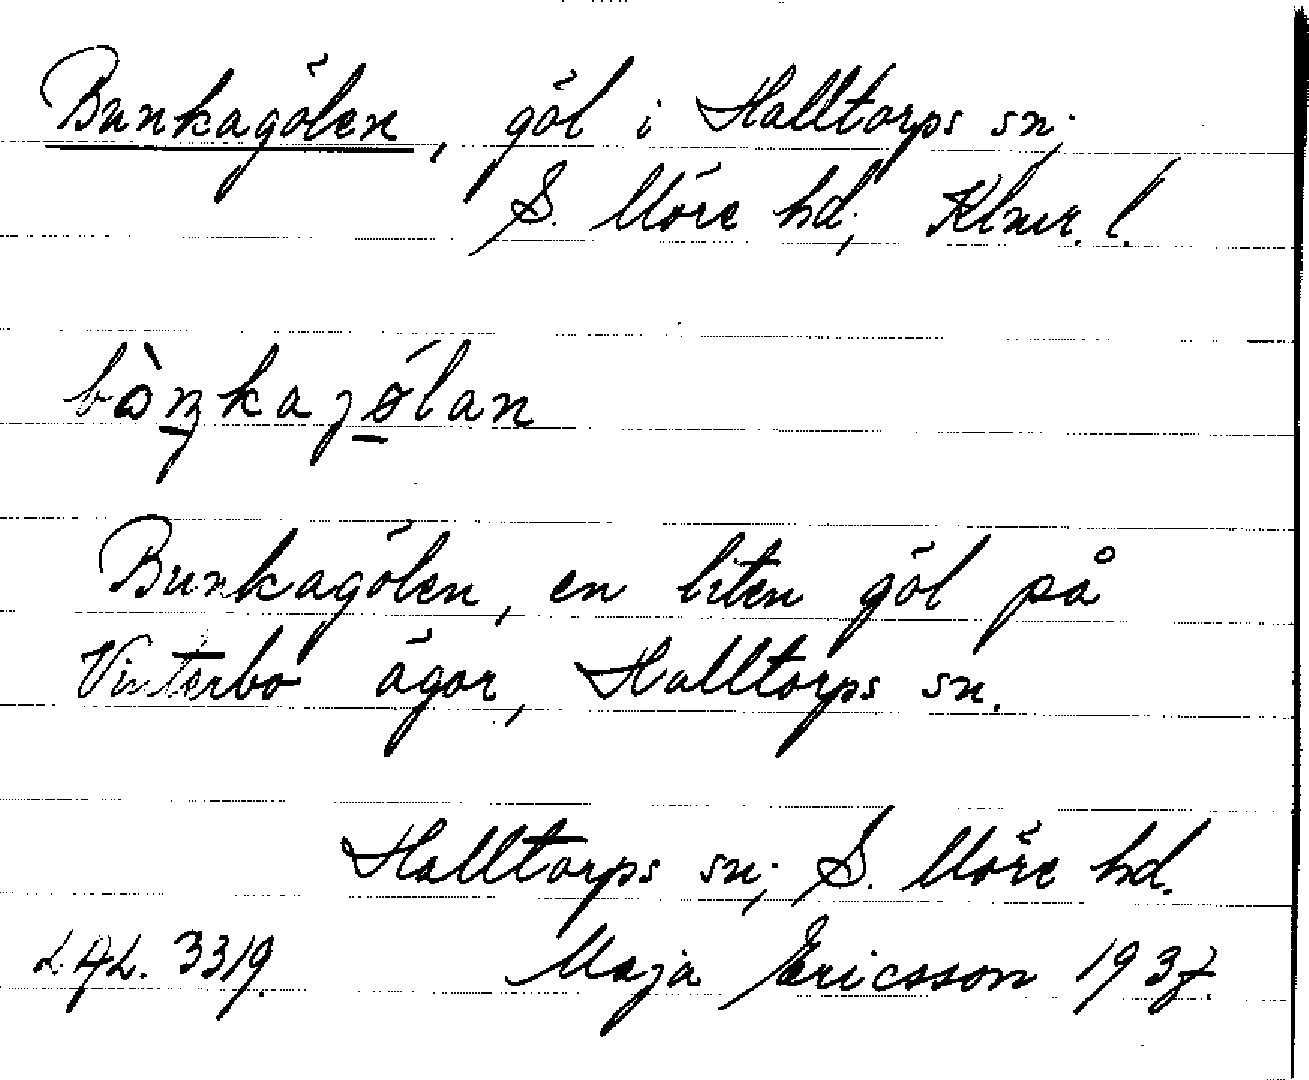 Bunkagölen, göl i Halltorps sn;
S. Möre hd; Klmr. l.
Bunkagölen, en liten göl på
Vinterbo ägor, Halltorps sn.
Halltorps sn; S. Möre hd.
3319. Maja Ericsson 1937.